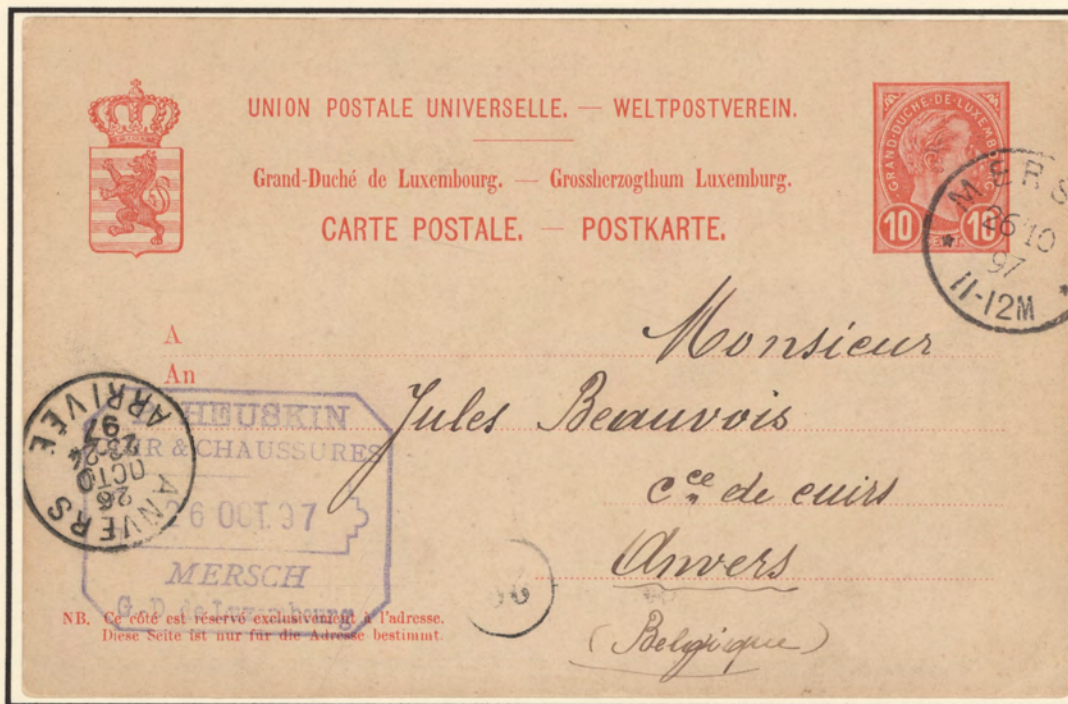 UNION POSTALE UNIVERSELLE. — WELTPOSTVEREIN.
Grand-Duché de Luxembourg. — Grossherzogthum Luxemburg.
CARTE POSTALE. — POSTKARTE.
GRAND-DUCHÉ-DE-LUXEMBOURG
10 10
MERS
26 10
97
11-12M
A
An
Monsieur
Jules Beauvois
cce de cuirs
Anvers
(Belgique)
HEUSKIN
& CHAUSSURES
26 OCT. 97
MERSCH
G.-D. de Luxembourg
ANVERS
26
OCTO
23-24
97
ARRIVÉE
NB. Ce côté est réservé exclusivement à l'adresse.
Diese Seite ist nur für die Adresse bestimmt.